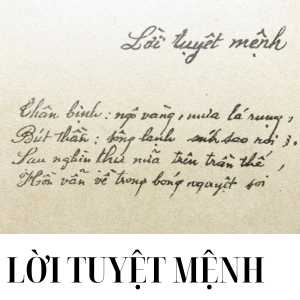 Lời tuyệt mệnh
Thân bịnh : ngô vàng, mưa lá rụng,
Bút thần : sông lạnh ánh sao rơi ;
Sau nghìn thu nữa trên trần thế,
Hồn vẫn về trong bóng nguyệt soi
LỜI TUYỆT MỆNH